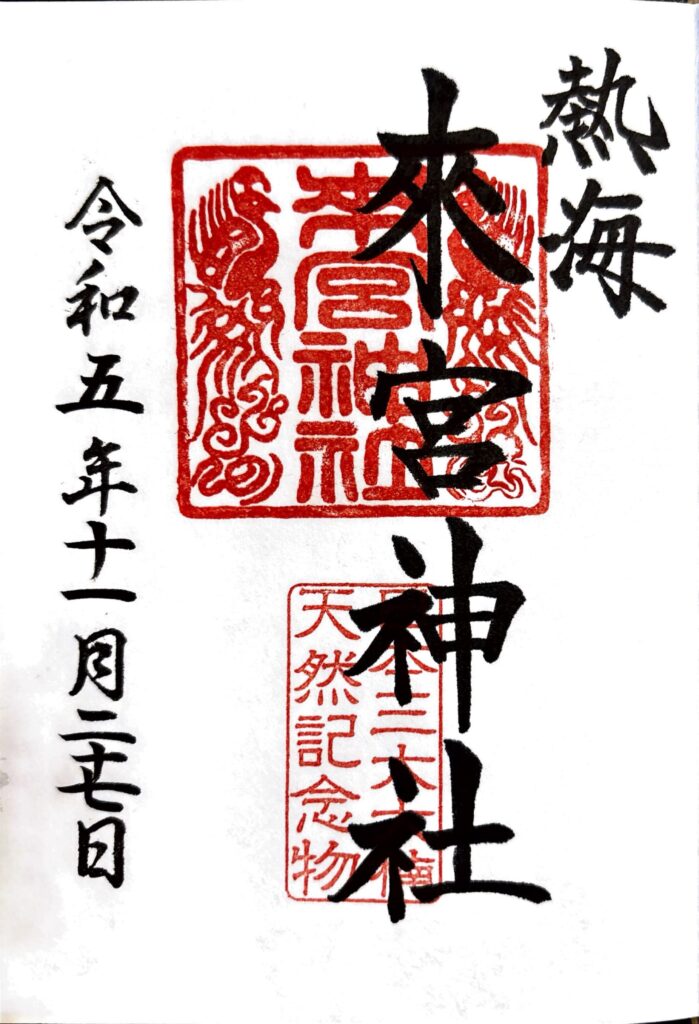 熱海
來宮神社
來宮神社
日本三大大楠
天然記念物
令和五年十一月二十七日